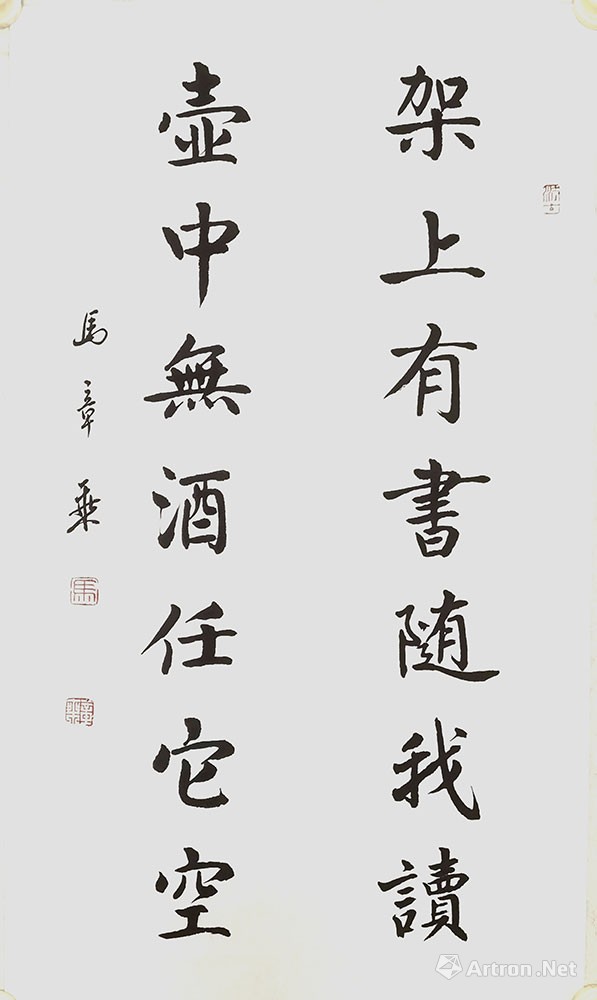 架上有書隨我讀
壺中無酒任它空
馬章乘
Artron.Net